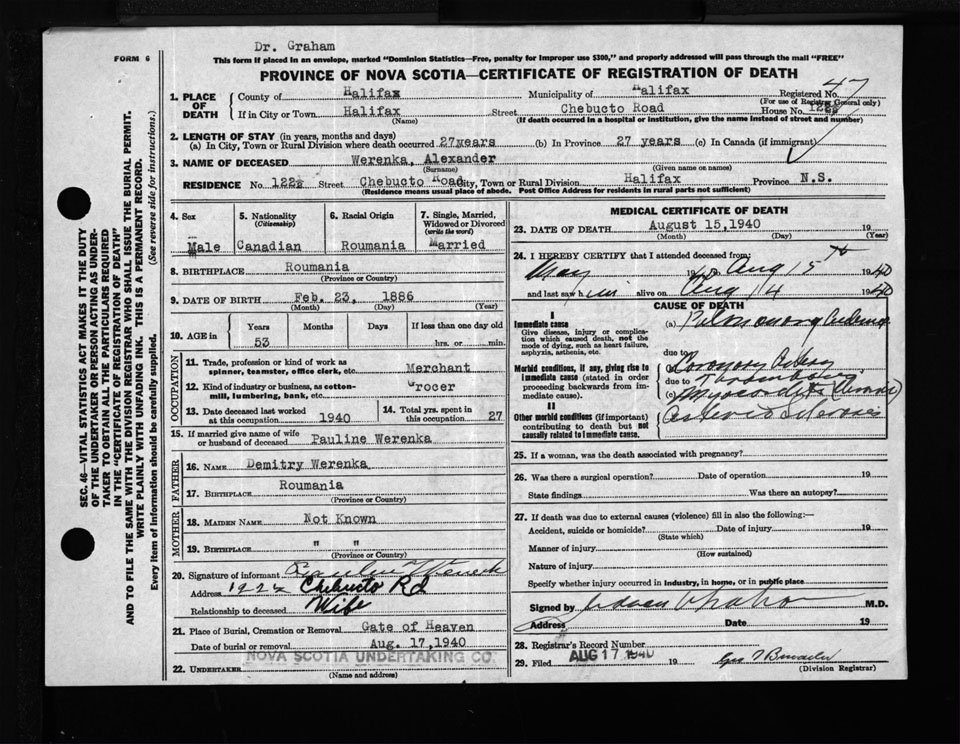 Dr. Graham
FORM 6
This form if placed in an envelope, marked "Dominion Statistics—Free, penalty for improper use $300," and properly addressed will pass through the mail "FREE"
PROVINCE OF NOVA SCOTIA—CERTIFICATE OF REGISTRATION OF DEATH
SEC. 46—VITAL STATISTICS ACT MAKES IT THE DUTY
OF THE UNDERTAKER OR PERSON ACTING AS UNDER-
TAKER TO OBTAIN ALL THE PARTICULARS REQUIRED
IN THE "CERTIFICATE OF REGISTRATION OF DEATH"
AND TO FILE THE SAME WITH THE DIVISION REGISTRAR WHO SHALL ISSUE THE BURIAL PERMIT.
WRITE PLAINLY WITH UNFADING INK. THIS IS A PERMANENT RECORD.
Every item of information should be carefully supplied. (See reverse side for instructions.)
1. PLACE OF DEATH
County of Halifax Municipality of Halifax Registered No. 47
(For use of Registrar General only)
If in City or Town Halifax Street Chebucto Road House No. 122½
(Name) (If death occurred in a hospital or institution, give the name instead of street and number)
2. LENGTH OF STAY (in years, months and days)
(a) In City, Town or Rural Division where death occurred 27years (b) In Province 27 years (c) In Canada (if immigrant)
3. NAME OF DECEASED Werenka, Alexander
(Surname) (Given name or names)
RESIDENCE No. 122½ Street Chebucto Road City, Town or Rural Division Halifax Province N.S.
(Residence means usual place of abode. Post Office Address for residents in rural parts not sufficient)
4. Sex
Male
5. Nationality
(Citizenship)
Canadian
6. Racial Origin
Roumania
7. Single, Married,
Widowed or Divorced
(write the word)
Married
8. BIRTHPLACE Roumania
(Province or Country)
9. DATE OF BIRTH Feb. 23, 1886
(Month) (Day) (Year)
10. AGE in Years Months Days If less than one day old
53 hrs. or min.
OCCUPATION
11. Trade, profession or kind of work as
spinner, teamster, office clerk, etc. Merchant
12. Kind of industry or business, as cotton-
mill, lumbering, bank, etc. Grocer
13. Date deceased last worked
at this occupation 1940
14. Total yrs. spent in
this occupation 27
15. If married give name of wife
or husband of deceased Pauline Werenka
FATHER
16. NAME Demitry Werenka
17. BIRTHPLACE Roumania
(Province or Country)
MOTHER
18. MAIDEN NAME Not Known
19. BIRTHPLACE " "
(Province or Country)
20. Signature of informant Pauline Werenka
Address 122½ Chebucto Rd
Relationship to deceased Wife
21. Place of Burial, Cremation or Removal Gate of Heaven
Date of burial or removal Aug. 17,1940
22. UNDERTAKER NOVA SCOTIA UNDERTAKING CO.
(Name and address)
MEDICAL CERTIFICATE OF DEATH
23. DATE OF DEATH August 15,1940 19
(Month) (Day) (Year)
24. I HEREBY CERTIFY that I attended deceased from:
May 19 to Aug 15th 1940
and last saw him alive on Aug 14 1940
CAUSE OF DEATH
I
Immediate cause
Give disease, injury or complica-
tion which caused death, not the
mode of dying, such as heart failure,
asphyxia, asthenia, etc.
(a) Pulmonary
due to
Morbid conditions, if any, giving rise to
immediate cause (stated in order
proceeding backwards from im-
mediate cause).
(b) Coronary Artery
due to Thrombosis
(c) Myocarditis (Chronic)
II
Other morbid conditions (if important)
contributing to death but not
causally related to immediate cause.
25. If a woman, was the death associated with pregnancy?
26. Was there a surgical operation? Date of operation 19
State findings Was there an autopsy?
27. If death was due to external causes (violence) fill in also the following:—
Accident, suicide or homicide? Date of injury 19
(State which)
Manner of injury
(How sustained)
Nature of injury
Specify whether injury occurred in industry, in home, or in public place
Signed by Graham M.D.
Address Date 19
28. Registrar's Record Number
29. Filed AUG 17 1940 19
(Division Registrar)